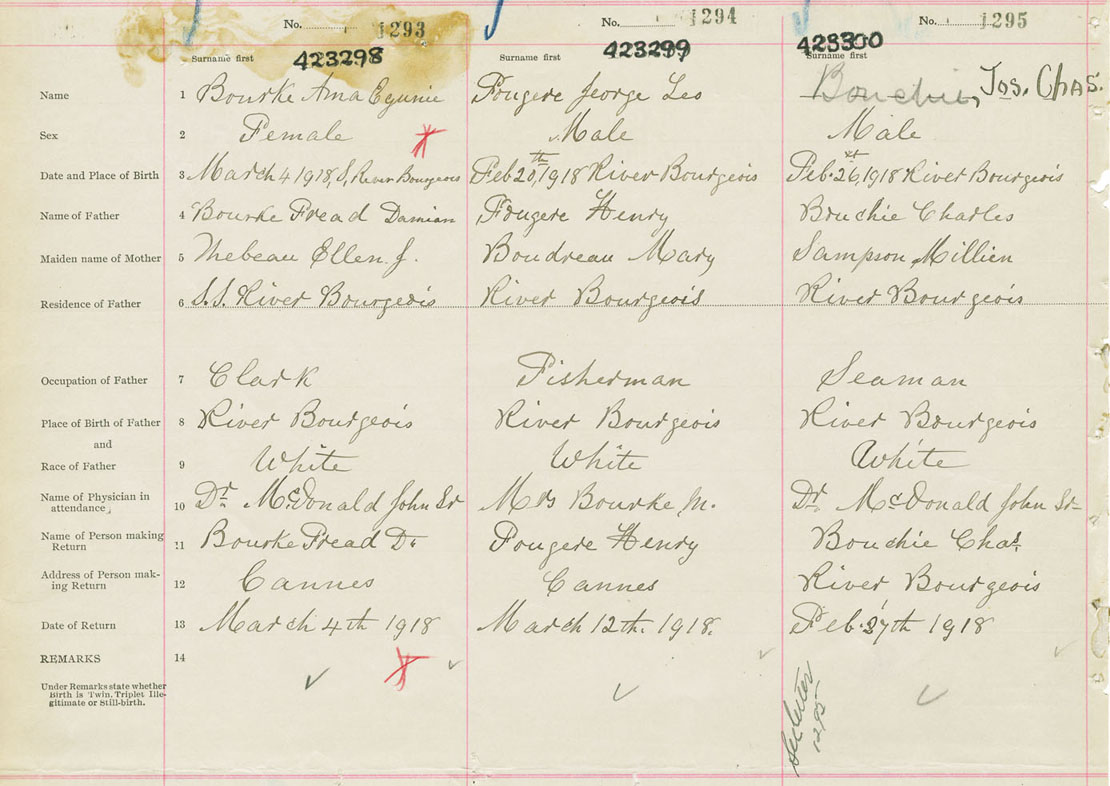 No. 1293 No. 1294 No. 1295
423298 423299 423300
Surname first Surname first Surname first
Name 1 Bourke Ama Egunie Fougere George Leo Bouchie, Jos. Chas.
Sex 2 Female Male Male
Date and Place of Birth 3 March 4 1918, S, River Bourgeois Feb 20th, 1918 River Bourgeois Feb. 26st, 1918 River Bourgeois
Name of Father 4 Bourke Fread Damian Fougere Henry Bouchie Charles
Maiden name of Mother 5 Thebeau Ellen J. Boudreau Mary Sampson, Millien
Residence of Father 6 S.S. River Bourgeois River Bourgeois River Bourgeois
Occupation of Father 7 Clark Fisherman Seaman
Place of Birth of Father 8 River Bourgeois River Bourgeois River Bourgeois
and
Race of Father 9 White White White
Name of Physician in
attendance, 10 Dr. McDonald John Sr Mrs Bourke M. Dr. McDonald John Sr
Name of Person making
Return 11 Bourke Fread D. Fougere Henry Bouchie Chas.
Address of Person mak-
ing Return 12 Cannes Cannes River Bourgeois
Date of Return 13 March 4th 1918 March 12th. 1918. Feb. 27th 1918
REMARKS 14
Under Remarks state whether
Birth is Twin, Triplet Ille-
gitimate or Still-birth.
See letter
1295